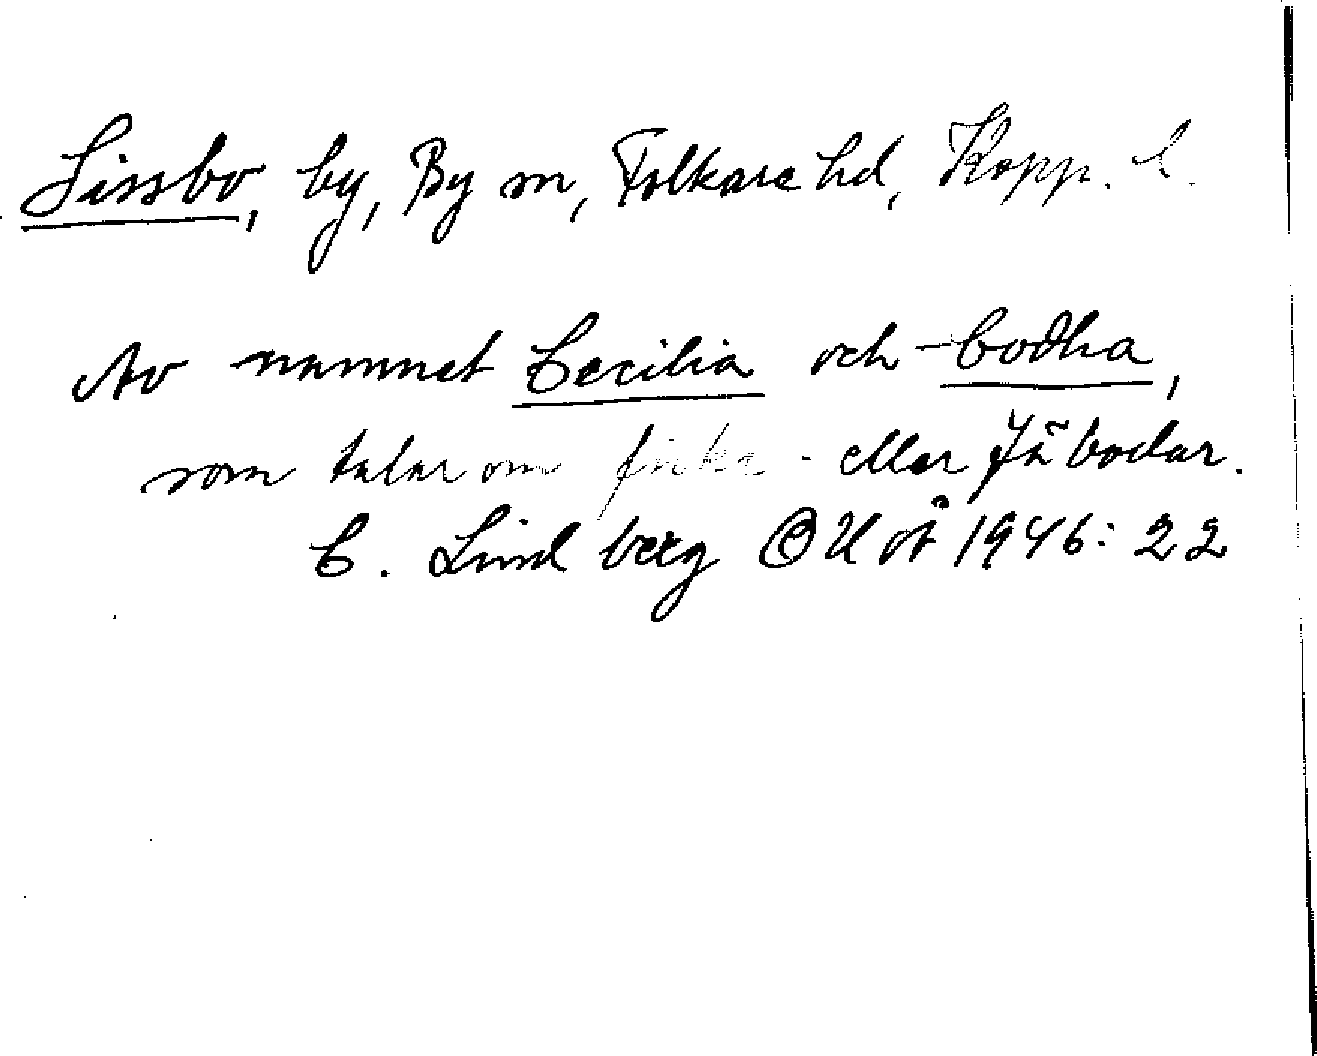 Sissbo, by, By sn, Folkare hd, Kopp. l.
Av namnet Cecilia och -bodha,
som talar om fiske- eller fäbodar.
C. Lindberg OUOÅ 1946: 22